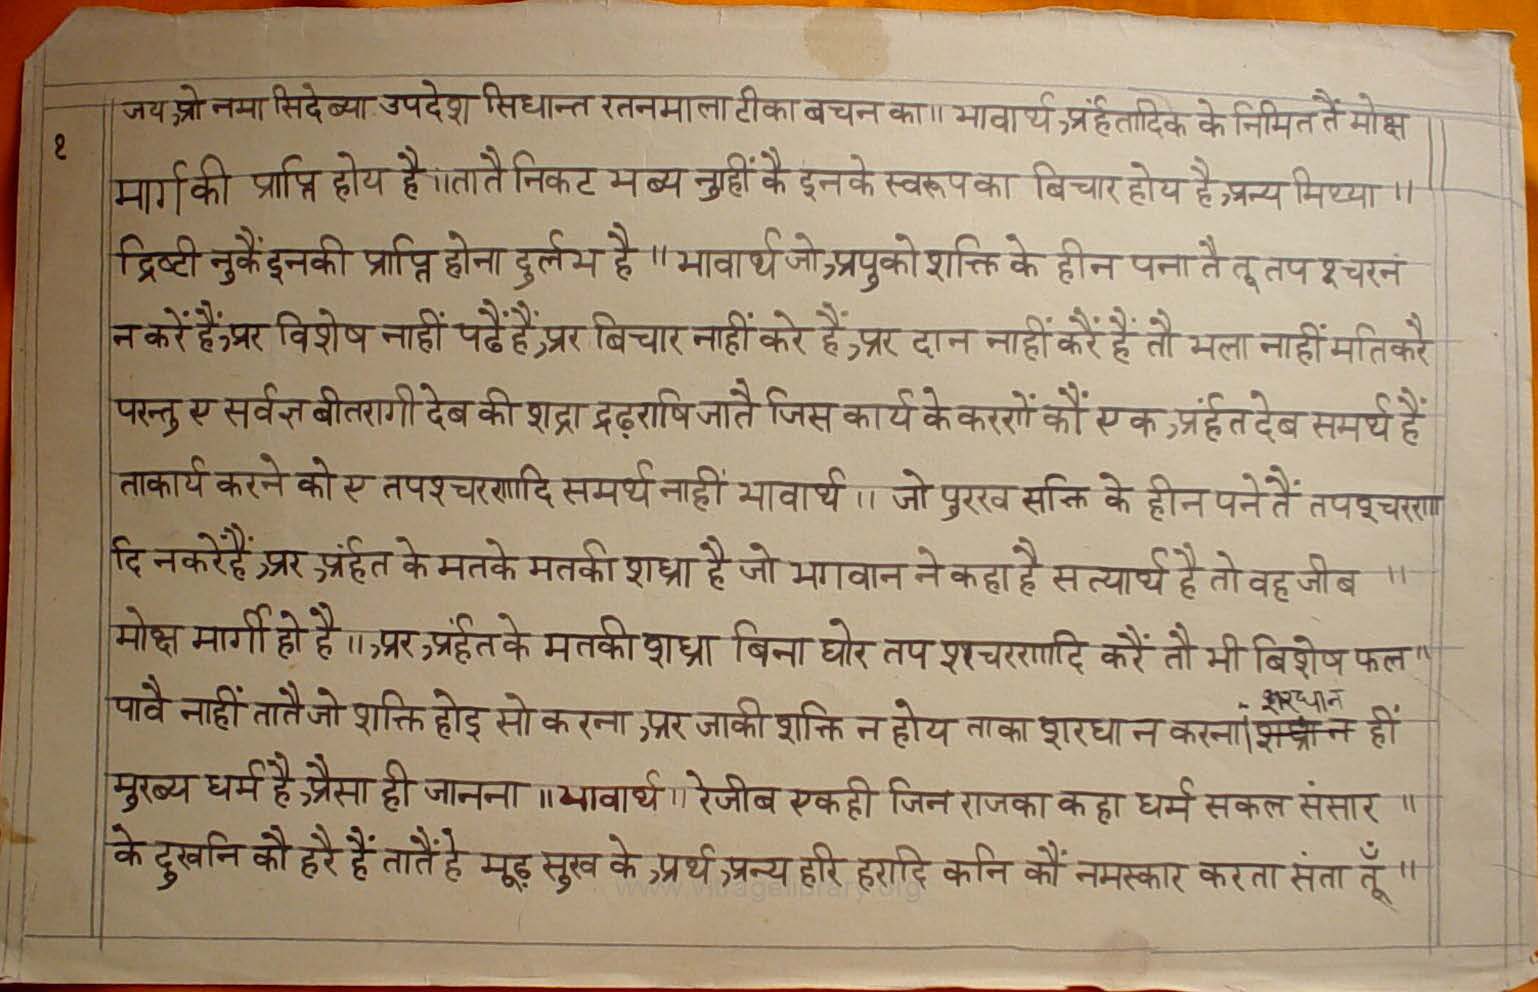 जय ओ नमा सिदेब्या उपदेश सिधान्त रतनमाला टीका बचन का॥ भावार्थ अर्हंतादिक के निमित तैं मोक्ष
१
मार्ग की प्राप्ति होय है॥ तातै निकट भब्य नुहीं कै इनके स्वरूप का बिचार होय है अन्य मिथ्या॥
द्रिष्टी नुकैं इनकी प्राप्ति होना दुर्लभ है॥ भावार्थ जो अपुको शक्ति के हीन पना तै तू तप श्चरन
न करें हैं अर विशेष नाहीं पढैं हैं अर बिचार नाहीं करे हैं अर दान नाहीं करैं हैं तौ भला नाहीं मति करै
परन्तु ए सर्वज्ञ बीतरागी देब की शद्रा द्रढ़ राषि जातै जिस कार्य के करणें कौं एक अर्हंत देब समर्थ हैं
ता कार्य करने को ए तपश्चरणादि समर्थ नाहीं भावार्थ॥ जो पुरख सक्ति के हीन पने तैं तपश्चरणा
दि न करें हैं अर अर्हंत के मतके मतकी शध्रा है जो भगवान ने कहा है सत्यार्थ है तो वह जीब॥
मोक्ष मार्गी हो है॥ अर अर्हंत के मतकी शध्रा बिना घोर तप श्चरणादि करैं तौ भी बिशेष फल॥
पावै नाहीं तातै जो शक्ति होइ सो करना अर जाकी शक्ति न होय ताका शरधा न करना। शरधान हीं
मुख्य धर्म है अैसा ही जानना॥ भावार्थ॥ रे जीब एकही जिन राजका कहा धर्म सकल संसार॥
के दुखनि कौ हरै हैं तातैं हे मूढ़ सुख के अर्थ अन्य हरि हरादि कनि कौं नमस्कार करता संता तूँ॥